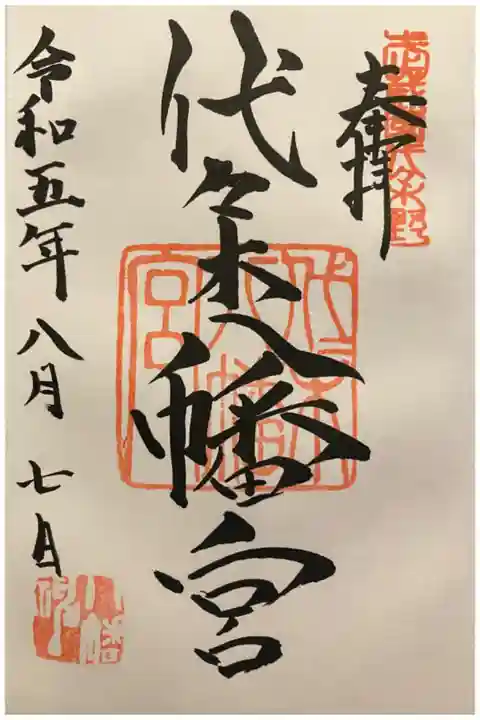 奉拝
代々木八幡宮
令和五年八月七日
代々木八幡宮